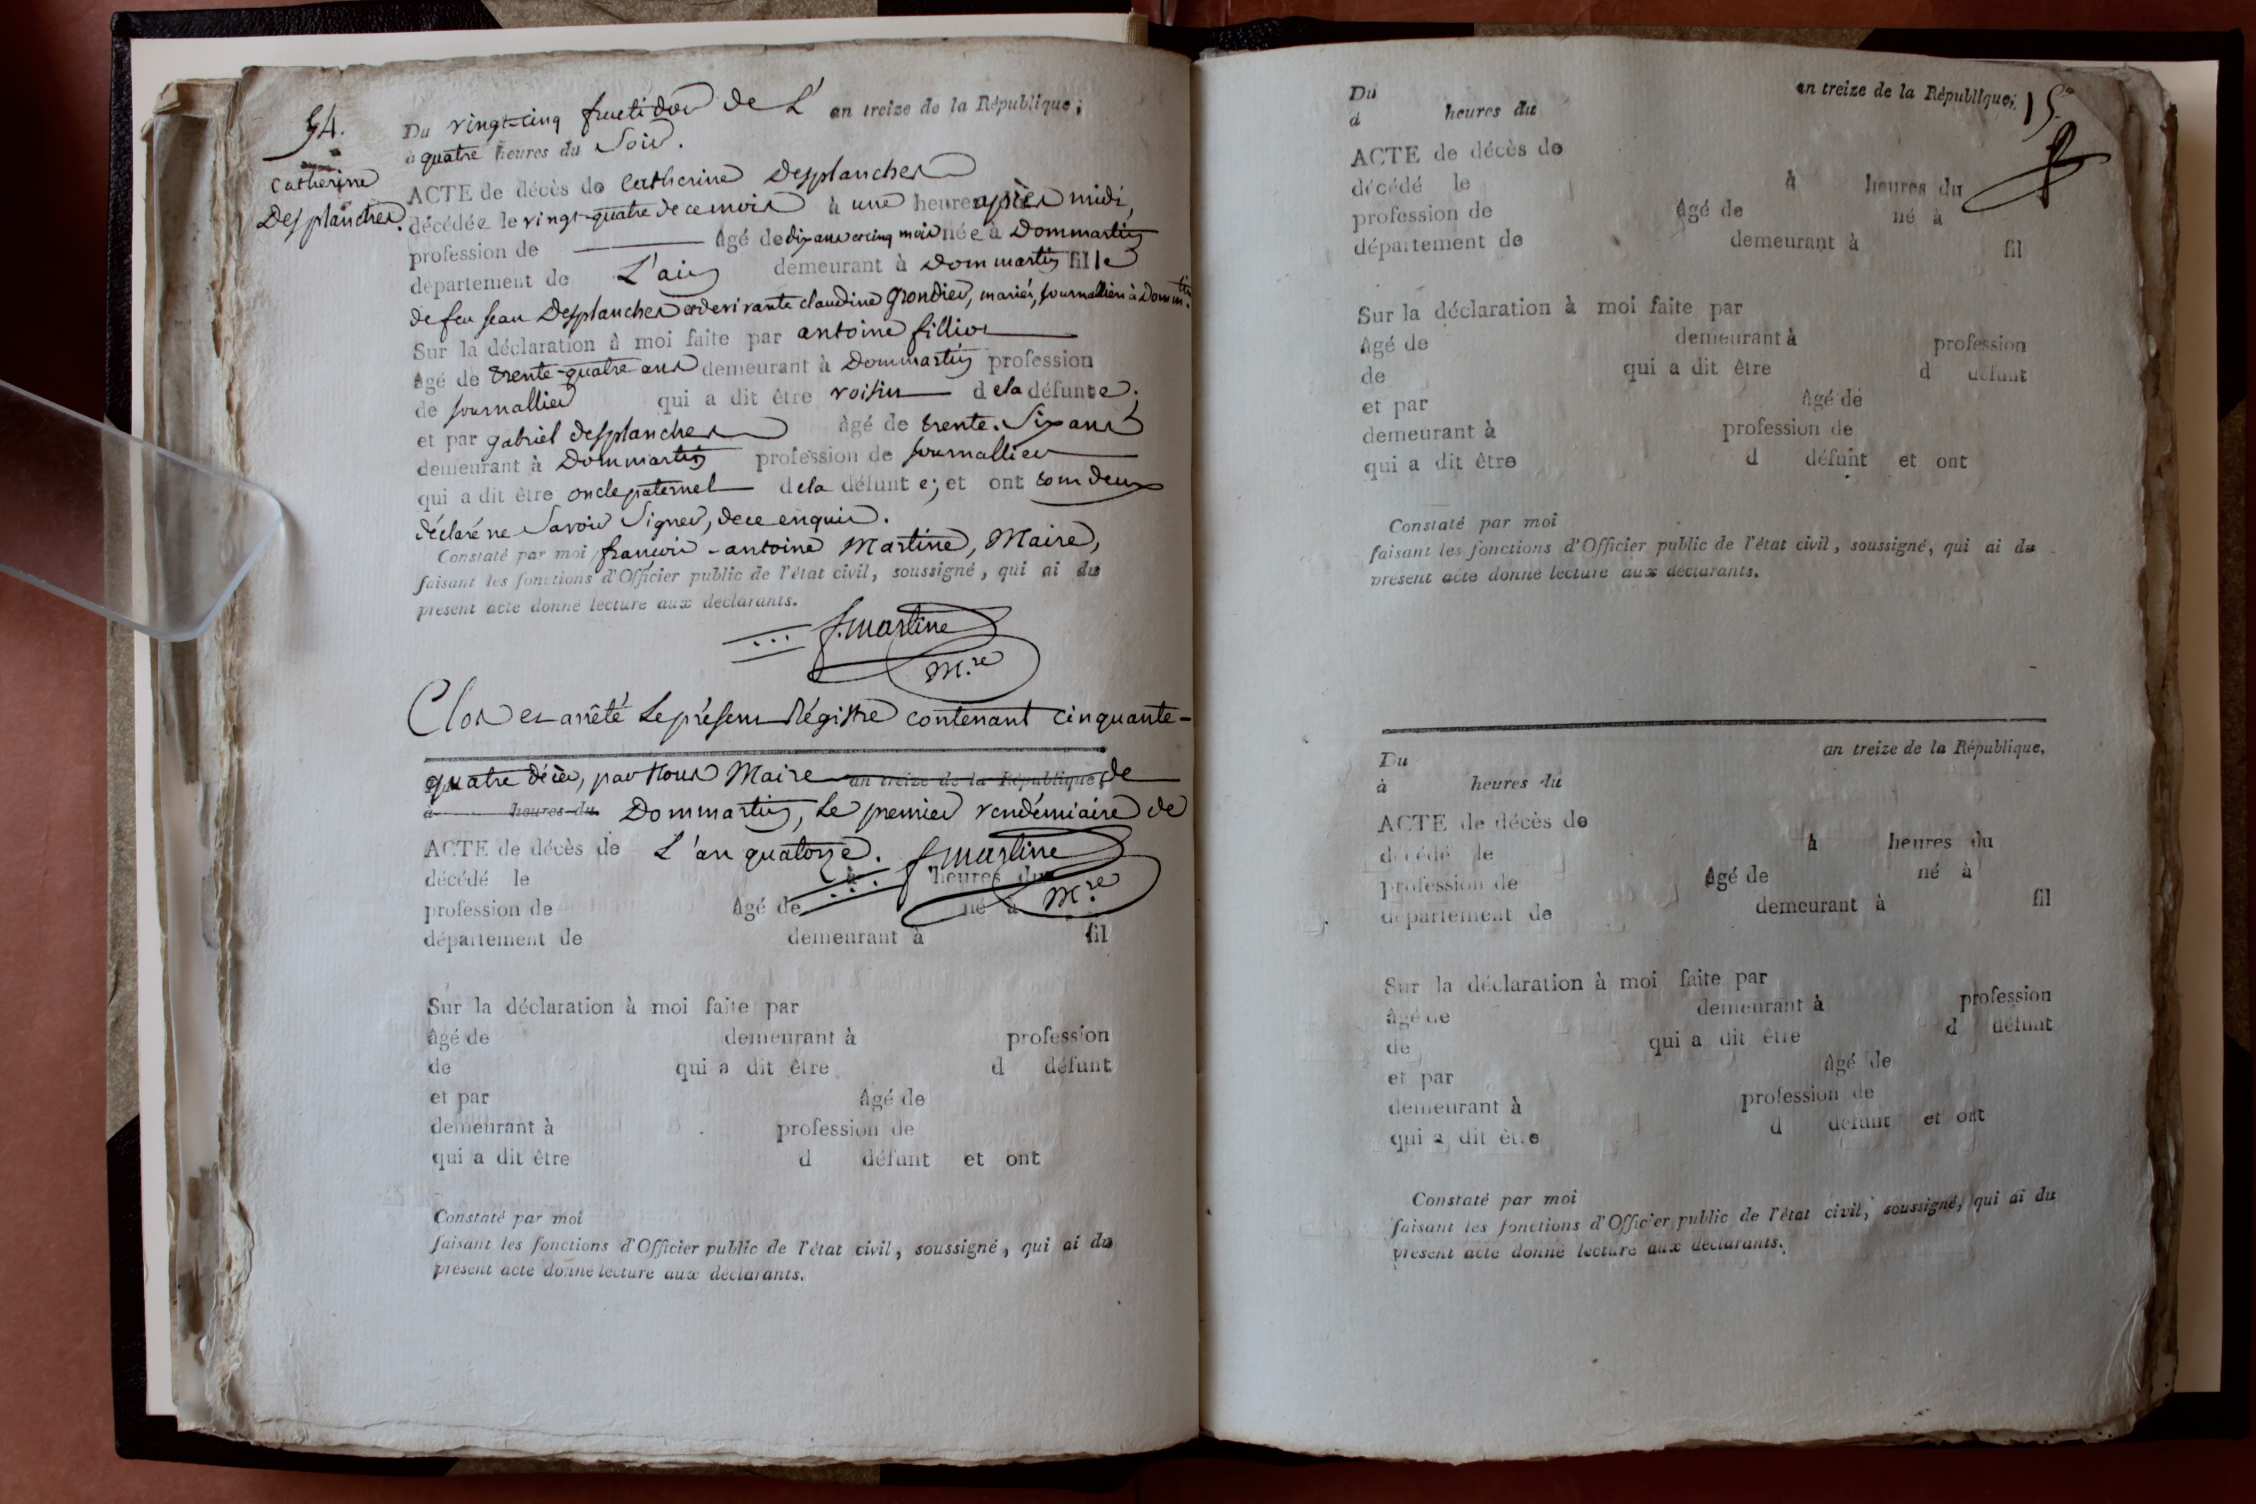 54.
Catherine
Desplanches.
Du vingt-cinq fructidor de L' an treize de la République;
à quatre heures du Soir.
ACTE de décès de Catherine Desplanches
décédée le vingt-quatre de ce mois à une heure après midi,
profession de âgé de dix ans et cinq mois née à Dommartin
département de L'ain demeurant à Dommartin fille
de feu jean Desplanches et de vivante claudine Grondier, mariés, journalliers à Domm.tin
Sur la déclaration à moi faite par antoine fillion
âgé de trente-quatre ans demeurant à Dommartin profession
de journallier qui a dit être voisin de la défunte;
et par gabriel desplanches âgé de trente-Six ans
demeurant à Dommartin profession de journallier
qui a dit être oncle paternel de la défunte; et ont tous deux
déclaré ne Savoir Signer, de ce enquis.
Constaté par moi françois-antoine Martine, Maire,
faisant les fonctions d'Officier public de l'état civil, soussigné, qui ai du
présent acte donné lecture aux déclarants.
f. martine
M.re
Clos et arrêté Le présent Régistre contenant cinquante-
quatre décès, par Nous Maire an treize de la République, de
à heures du Dommartin, Le premier vendémiaire de
ACTE de décès de L'an quatorze. f. martine
décédé le à heures du M.re
profession de âgé de né à
département de demeurant à fil
Sur la déclaration à moi faite par
âgé de demeurant à profession
de qui a dit être d défunt
et par âgé de
demeurant à profession de
qui a dit être d défunt et ont
Constaté par moi
faisant les fonctions d'Officier public de l'état civil, soussigné, qui ai du
présent acte donné lecture aux déclarants.
Du an treize de la République; 15
à heures du
ACTE de décès de
décédé le à heures du
profession de âgé de né à
département de demeurant à fil
Sur la déclaration à moi faite par
âgé de demeurant à profession
de qui a dit être d défunt
et par âgé de
demeurant à profession de
qui a dit être d défunt et ont
Constaté par moi
faisant les fonctions d'Officier public de l'état civil, soussigné, qui ai du
présent acte donné lecture aux déclarants.
Du an treize de la République,
à heures du
ACTE de décès de
décédé le à heures du
profession de âgé de né à
département de demeurant à fil
Sur la déclaration à moi faite par
âgé de demeurant à profession
de qui a dit être d défunt
et par âgé de
demeurant à profession de
qui a dit être d défunt et ont
Constaté par moi
faisant les fonctions d'Officier public de l'état civil, soussigné, qui ai du
présent acte donné lecture aux déclarants.